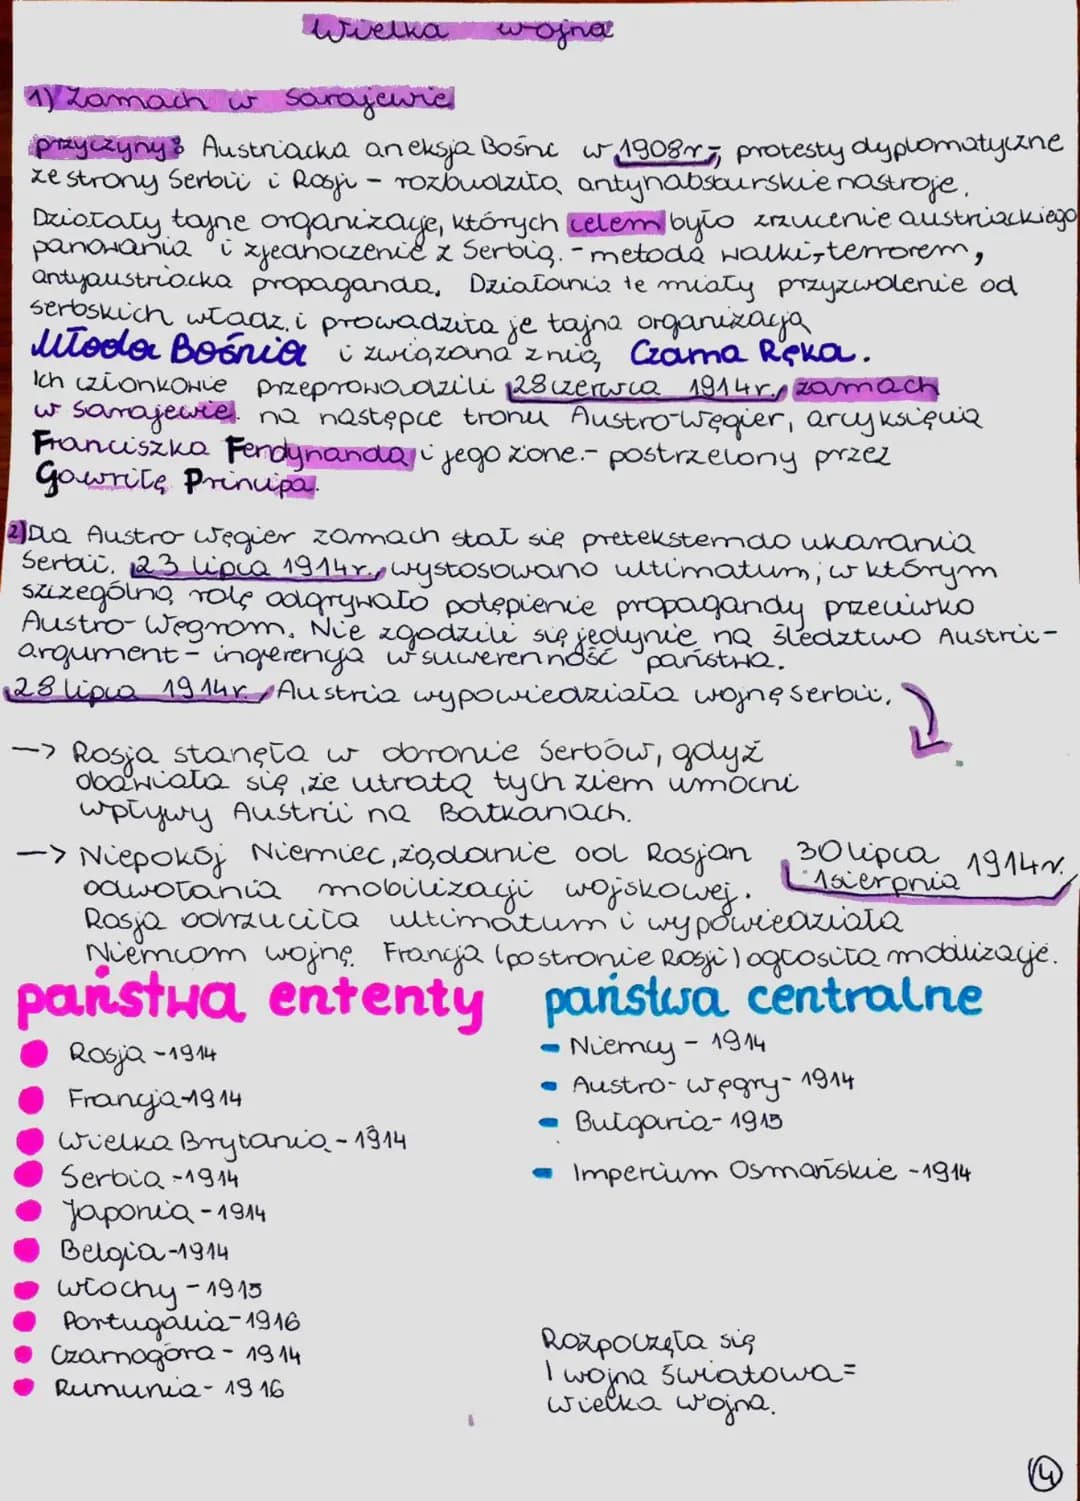 Wielka wojna
1) Zamach w Sarajewie
przyczyny: Austriacka aneksja Bośni w 1908r- protesty dyplomatyczne
ze strony Serbii i Rosji - rozbudziło antyhabsburskie nastroje.
Działały tajne organizacje, których celem było zrzucenie austriackiego
panowania i zjednoczenie z Serbią. - metodą walki, terrorem,
antyaustriacką propagandą. Działania te miały przyzwolenie od
serbskich władz i prowadziła je tajna organizacja
Młoda Bośnia i związana z nią Czarna Ręka.
Ich członkowie przeprowadzili 28 czerwca 1914r. zamach
w Sarajewie. na następcę tronu Austro-Węgier, arcyksięcia
Franciszka Ferdynanda i jego żone.- postrzelony przez
Gawriłę Principa.
2) Dla Austro-Węgier zamach stał się pretekstem do ukarania
Serbii. 23 lipca 1914r. wystosowano ultimatum, w którym
szczególną rolę odgrywało potępienie propagandy przeciwko
Austro-Węgrom. Nie zgodzili się jedynie na śledztwo Austrii-
argument - ingerencja w suwerenność państwa.
28 lipca 1914r. Austria wypowiedziała wojnę Serbii.
-> Rosja stanęła w obronie Serbów, gdyż
obawiała się, że utrata tych ziem umocni
wpływy Austrii na Bałkanach.
-> Niepokój Niemiec, żądanie od Rosjan 30 lipca 1914r.
odwołania mobilizacji wojskowej. 1 sierpnia
Rosja odrzuciła ultimatum i wypowiedziała
Niemcom wojnę. Francja (po stronie Rosji) ogłosiła mobilizację.
państwa ententy
Rosja - 1914
Francja - 1914
Wielka Brytania - 1914
Serbia - 1914
Japonia - 1914
Belgia - 1914
Włochy - 1915
Portugalia - 1916
Czarnogóra - 1914
Rumunia - 1916
państwa centralne
- Niemcy - 1914
- Austro-Węgry - 1914
- Bułgaria - 1915
- Imperium Osmańskie - 1914
Rozpoczęła się
I wojna światowa =
wielka wojna.
4